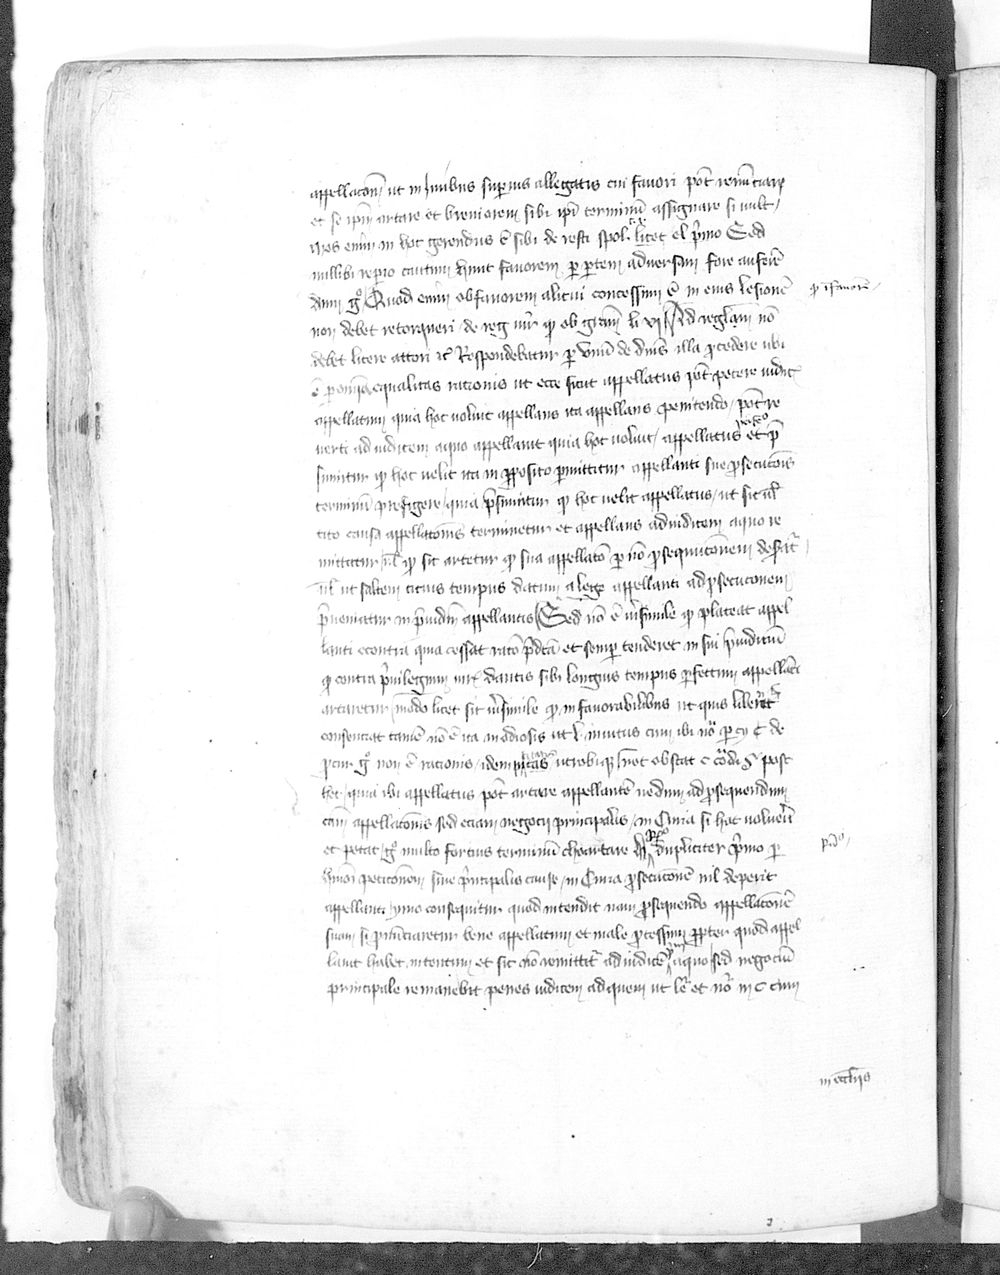 appellaconi ut in iuribus superius allegatis cui favori pot renunciare
et se ipm artare et breviorem sibi ipi terminum assignare si vult
mos enim in hoc gerendus e sibi de resti spol. c. licet el primo Sed
nullibi reperio cautum hunc favorem per partem adversam fore auferen
dum go Quod enim ob favorem alicui concessum e in eius lesione
non debet retorqueri de reg iur qd ob gram li vi Ad reglam no
debet licere actori rc Respondebatur per unum de dnis illa procedere ubi
e par omnia equalitas racionis ut ecce sicut appellatus pot petere iudic
appellatum quia hoc voluit appellans ita appellans penitendo pot re
verti ad iudicem a quo appellavit quia hoc voluit appellatus et pre
sumitur qd hoc velit ita in proposito permittitur appellanti sue prosecucois
terminum prefigere quia presumitur qd hoc velit appellatus ut sic vl
cito causa appellacois terminetur et appellans ad iudicem a quo re
mittitur vl qd sic artetur qd sua appellaco per no prosequucionem deserat
vl ut saltem cicius tempus datum a lege appellanti ad prosecucionem
preveniatur in preiudm appellantis Sed no e verisimile qd placeat appel
lanti econtra quia cessat raco predca et semper tenderet in sui preiudicium
qd contra privilegium iuris dantis sibi longius tempus perfectum appellaci
artaretur modo licet sit verisimile qd in favorabilibus ut quis
consenciat tamen no e ita in odiosis ut l. invitus cum ibi no per cy C de
procur go non e racionis idemptitas utrobique nec obstat c
hoc quia ibi appellatus pot artare appellante nedum ad prosequendum
cam appellacois sed eciam negocii principalis in Curia si hoc voluerit
et petat go multo forcius terminum artare Rndeo dupliciter primo per
hmoi peticonem sive principalis cause in Curia prosecucone nil deperit
appellanti ymo consequitur quod intendit nam prosequendo appellacone
suam si pronunciaretur bene appellatum et male processum propter quod appel
lavit habet intentum et sic no remittitur ad iudice a quo sed negocium
principale remanebit penes iudicem ad quem ut le et no in c cum
qd i favore
primo
in ecclesiis